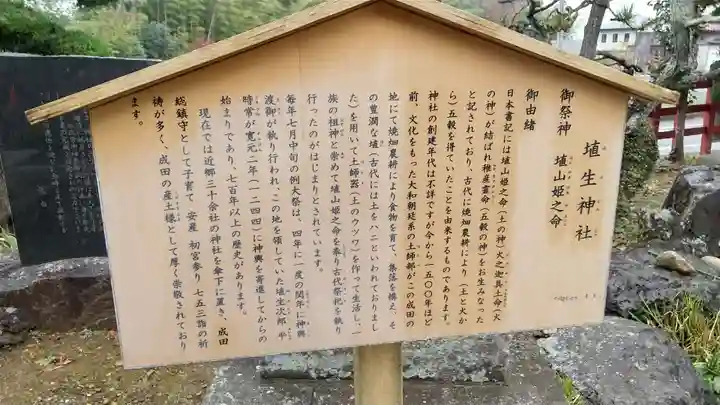 埴生神社
御祭神　埴山姫之命
御由緒
日本書記には埴山姫之命(土の神)火之迦具土命(火
の神)が結ばれ稚産霊命(五穀の神)をお生みなった
と記されており、古代に焼畑農耕により(土と火か
ら)五穀を得ていたことを由来するものであります。
神社の創建年代は不詳ですが今から一五〇〇年ほど
前、文化をもった大和朝廷系の土師部がこの成田の
地にて焼畑農耕により食物を育て、集落を構え、そ
の豊潤な埴(古代には土をハニといわれておりまし
た)を用いて土師器(土のウツワ)を作って生活し、一
族の祖神と崇めて埴山姫之命を奉り古代祭祀を執り
行ったのがはじまりとされています。
毎年七月中旬の例大祭は、四年に一度の閏年に神輿
渡御が執り行われ、この地を領していた埴生次郎平
時常が寛元二年(一二四四)に神輿を寄進してからの
始まりであり、七百年以上の歴史があります。
現在では近郷三十余社の神社を傘下に置き、成田
総鎮守として子育て　安産　初宮参り　七五三詣の祈
祷が多く、成田の産土様として厚く崇敬されており
ます。